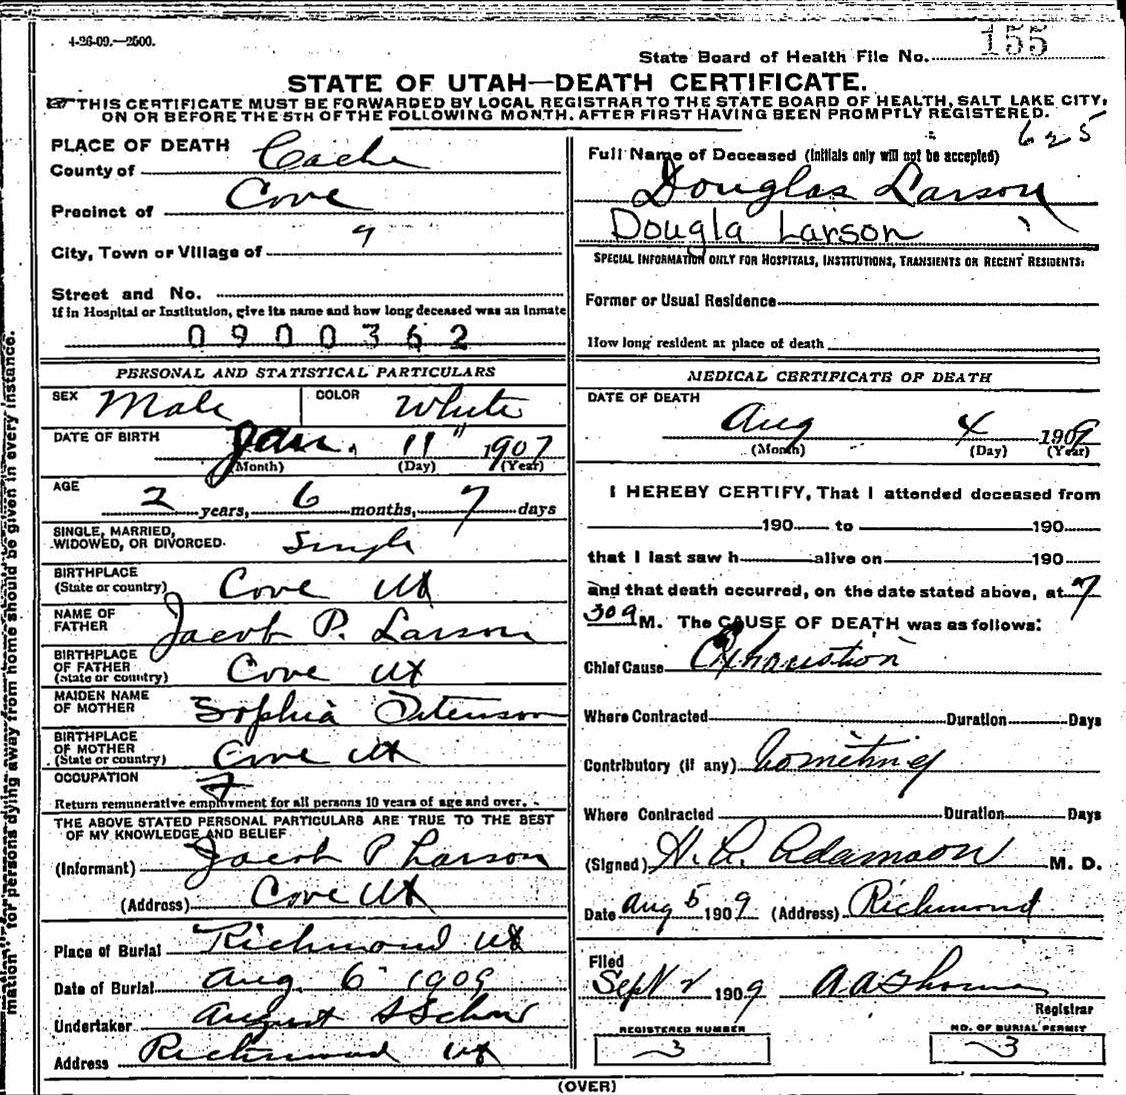 4-26-09.—2500.
State Board of Health File No. 155
STATE OF UTAH—DEATH CERTIFICATE.
☞THIS CERTIFICATE MUST BE FORWARDED BY LOCAL REGISTRAR TO THE STATE BOARD OF HEALTH, SALT LAKE CITY,
ON OR BEFORE THE 5TH OF THE FOLLOWING MONTH. AFTER FIRST HAVING BEEN PROMPTLY REGISTERED.
625
PLACE OF DEATH
County of Cache
Precinct of Cove
City, Town or Village of
Street and No.
If in Hospital or Institution, give its name and how long deceased was an inmate
0900362
Full Name of Deceased (Initials only will not be accepted)
Douglas Larson
Dougla Larson
SPECIAL INFORMATION ONLY FOR HOSPITALS, INSTITUTIONS, TRANSIENTS OR RECENT RESIDENTS:
Former or Usual Residence
How long resident at place of death
PERSONAL AND STATISTICAL PARTICULARS
SEX Male COLOR White
DATE OF BIRTH Jan. 11 1907
(Month) (Day) (Year)
AGE
2 years, 6 months, 7 days
SINGLE, MARRIED,
WIDOWED, OR DIVORCED. Single
BIRTHPLACE
(State or country) Cove Ut
NAME OF
FATHER Jacob P. Larson
BIRTHPLACE
OF FATHER
(State or country) Cove Ut
MAIDEN NAME
OF MOTHER Sophia
BIRTHPLACE
OF MOTHER
(State or country) Cove Ut
OCCUPATION
Return remunerative employment for all persons 10 years of age and over.
THE ABOVE STATED PERSONAL PARTICULARS ARE TRUE TO THE BEST
OF MY KNOWLEDGE AND BELIEF
(Informant) Jacob P Larson
(Address) Cove Ut
Place of Burial Richmond Ut
Date of Burial Aug. 6 1909
Undertaker August
Address Richmond Ut
MEDICAL CERTIFICATE OF DEATH
DATE OF DEATH
Aug 4 1909
(Month) (Day) (Year)
I HEREBY CERTIFY, That I attended deceased from
190 to 190
that I last saw h alive on 190
and that death occurred, on the date stated above, at 7
30 a M. The CAUSE OF DEATH was as follows:
Chief Cause Exhaustion
Where Contracted Duration Days
Contributory (if any) Vomiting
Where Contracted Duration Days
(Signed) Adamson M. D.
Date Aug 5 1909 (Address) Richmond
Filed
Sept 2 1909
Registrar
REGISTERED NUMBER
3
NO. OF BURIAL PERMIT
3
(OVER)
mation" for persons dying away from home should be given in every instance.